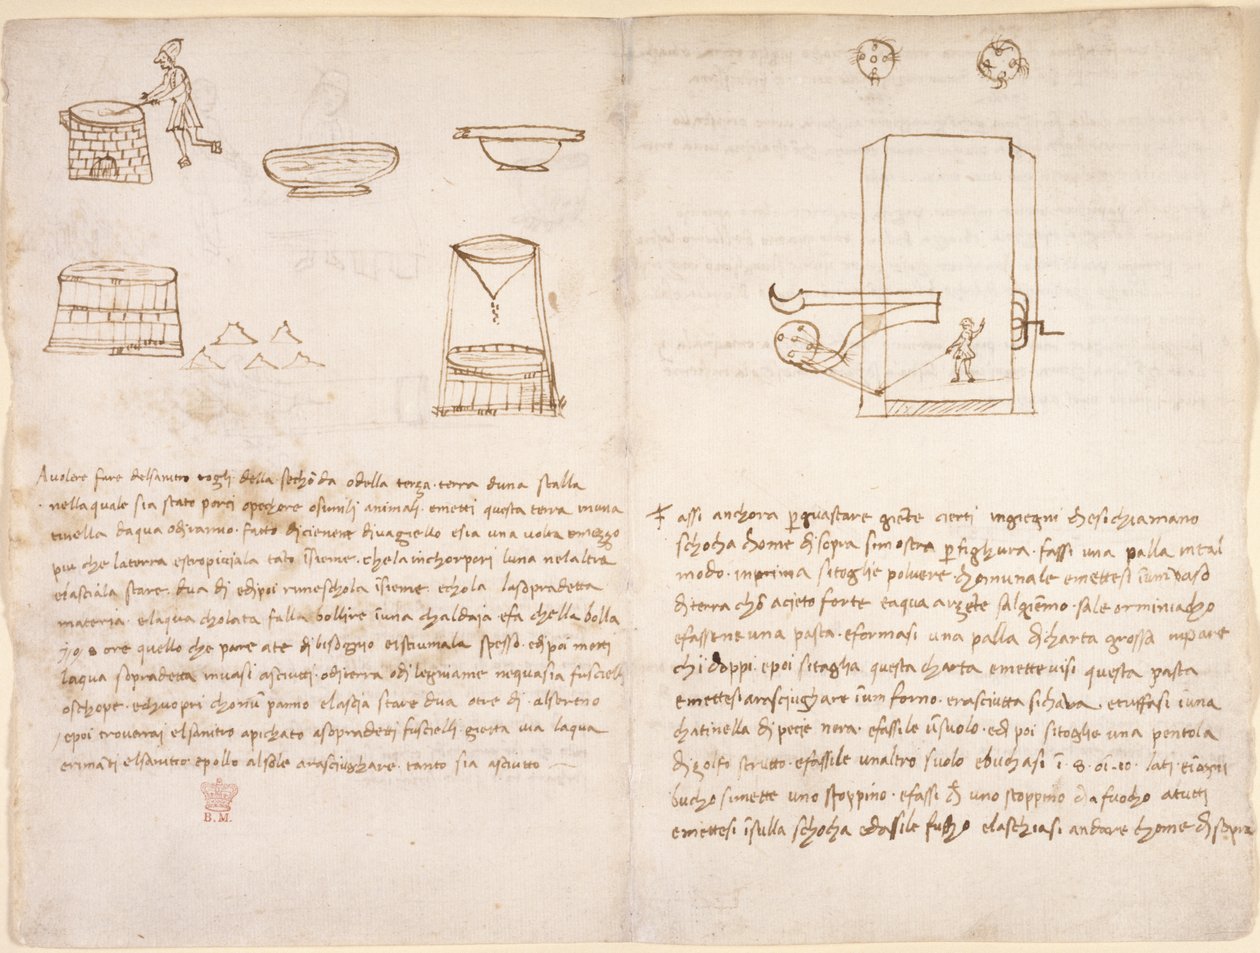 Avolere fare delsanitro togli della sechōda odella terza terra duna stalla
nellaquale sia stato porci opechore osimili animali emetti questa terra inuna
tinella daqua odiranno fatto di cienere diuagiello esia una uolta emezzo
piu che laterra estropiciala tāto īsieme chelaīnchorpori luna nelaltra
elasciala stare dua di edipoi rimeschola īsieme echola lasopradetta
materia elaqua cholata falla bollire ī una chaldaia efa chella bolla
8 ore quello che pare ate di bisogno eisciumala spesso edipoi metti
laqua sopradetta inuasi asciutti oditerra odi legniame nequasia fuscielli
oschope echuopri chonū panno elascia stare dua otre di alsereno
epoi troverai elsanitro apichato asopradetti fuscielli gietta uia laqua
erimāti elsanitro epollo alsole arasciughare tanto sia asciutto
B.M.
Fassi anchora p guastare giēte cierti ingiegni chesichiamano
schocha chome disopra simostra p fighura fassi una palla intal
modo inprima sitoghie poluere chomunale emettesi ī uno uaso
diterra chō acieto forte eaqua arzēte salgiēmo sale orminiacho
efassene una pasta eformasi una palla dicharta grossa inpare
chi doppi epoi sitaglia questa charta emetteuisi questa pasta
emettesi arasciughare ī un forno erasciutta sichaua etuffasi ī una
chatinella di pecie nera efassile ū suolo edi poi sitoglie una pentola
di golfo strutto efassile unaltro suolo ebuchasi ī 8 o ī 10 lati eī ogni
bucho simette uno stoppino efassi ch uno stoppino dia fuocho atutti
emettesi ī sulla schocha edassile fuocho elaschiasi andare chome disopra